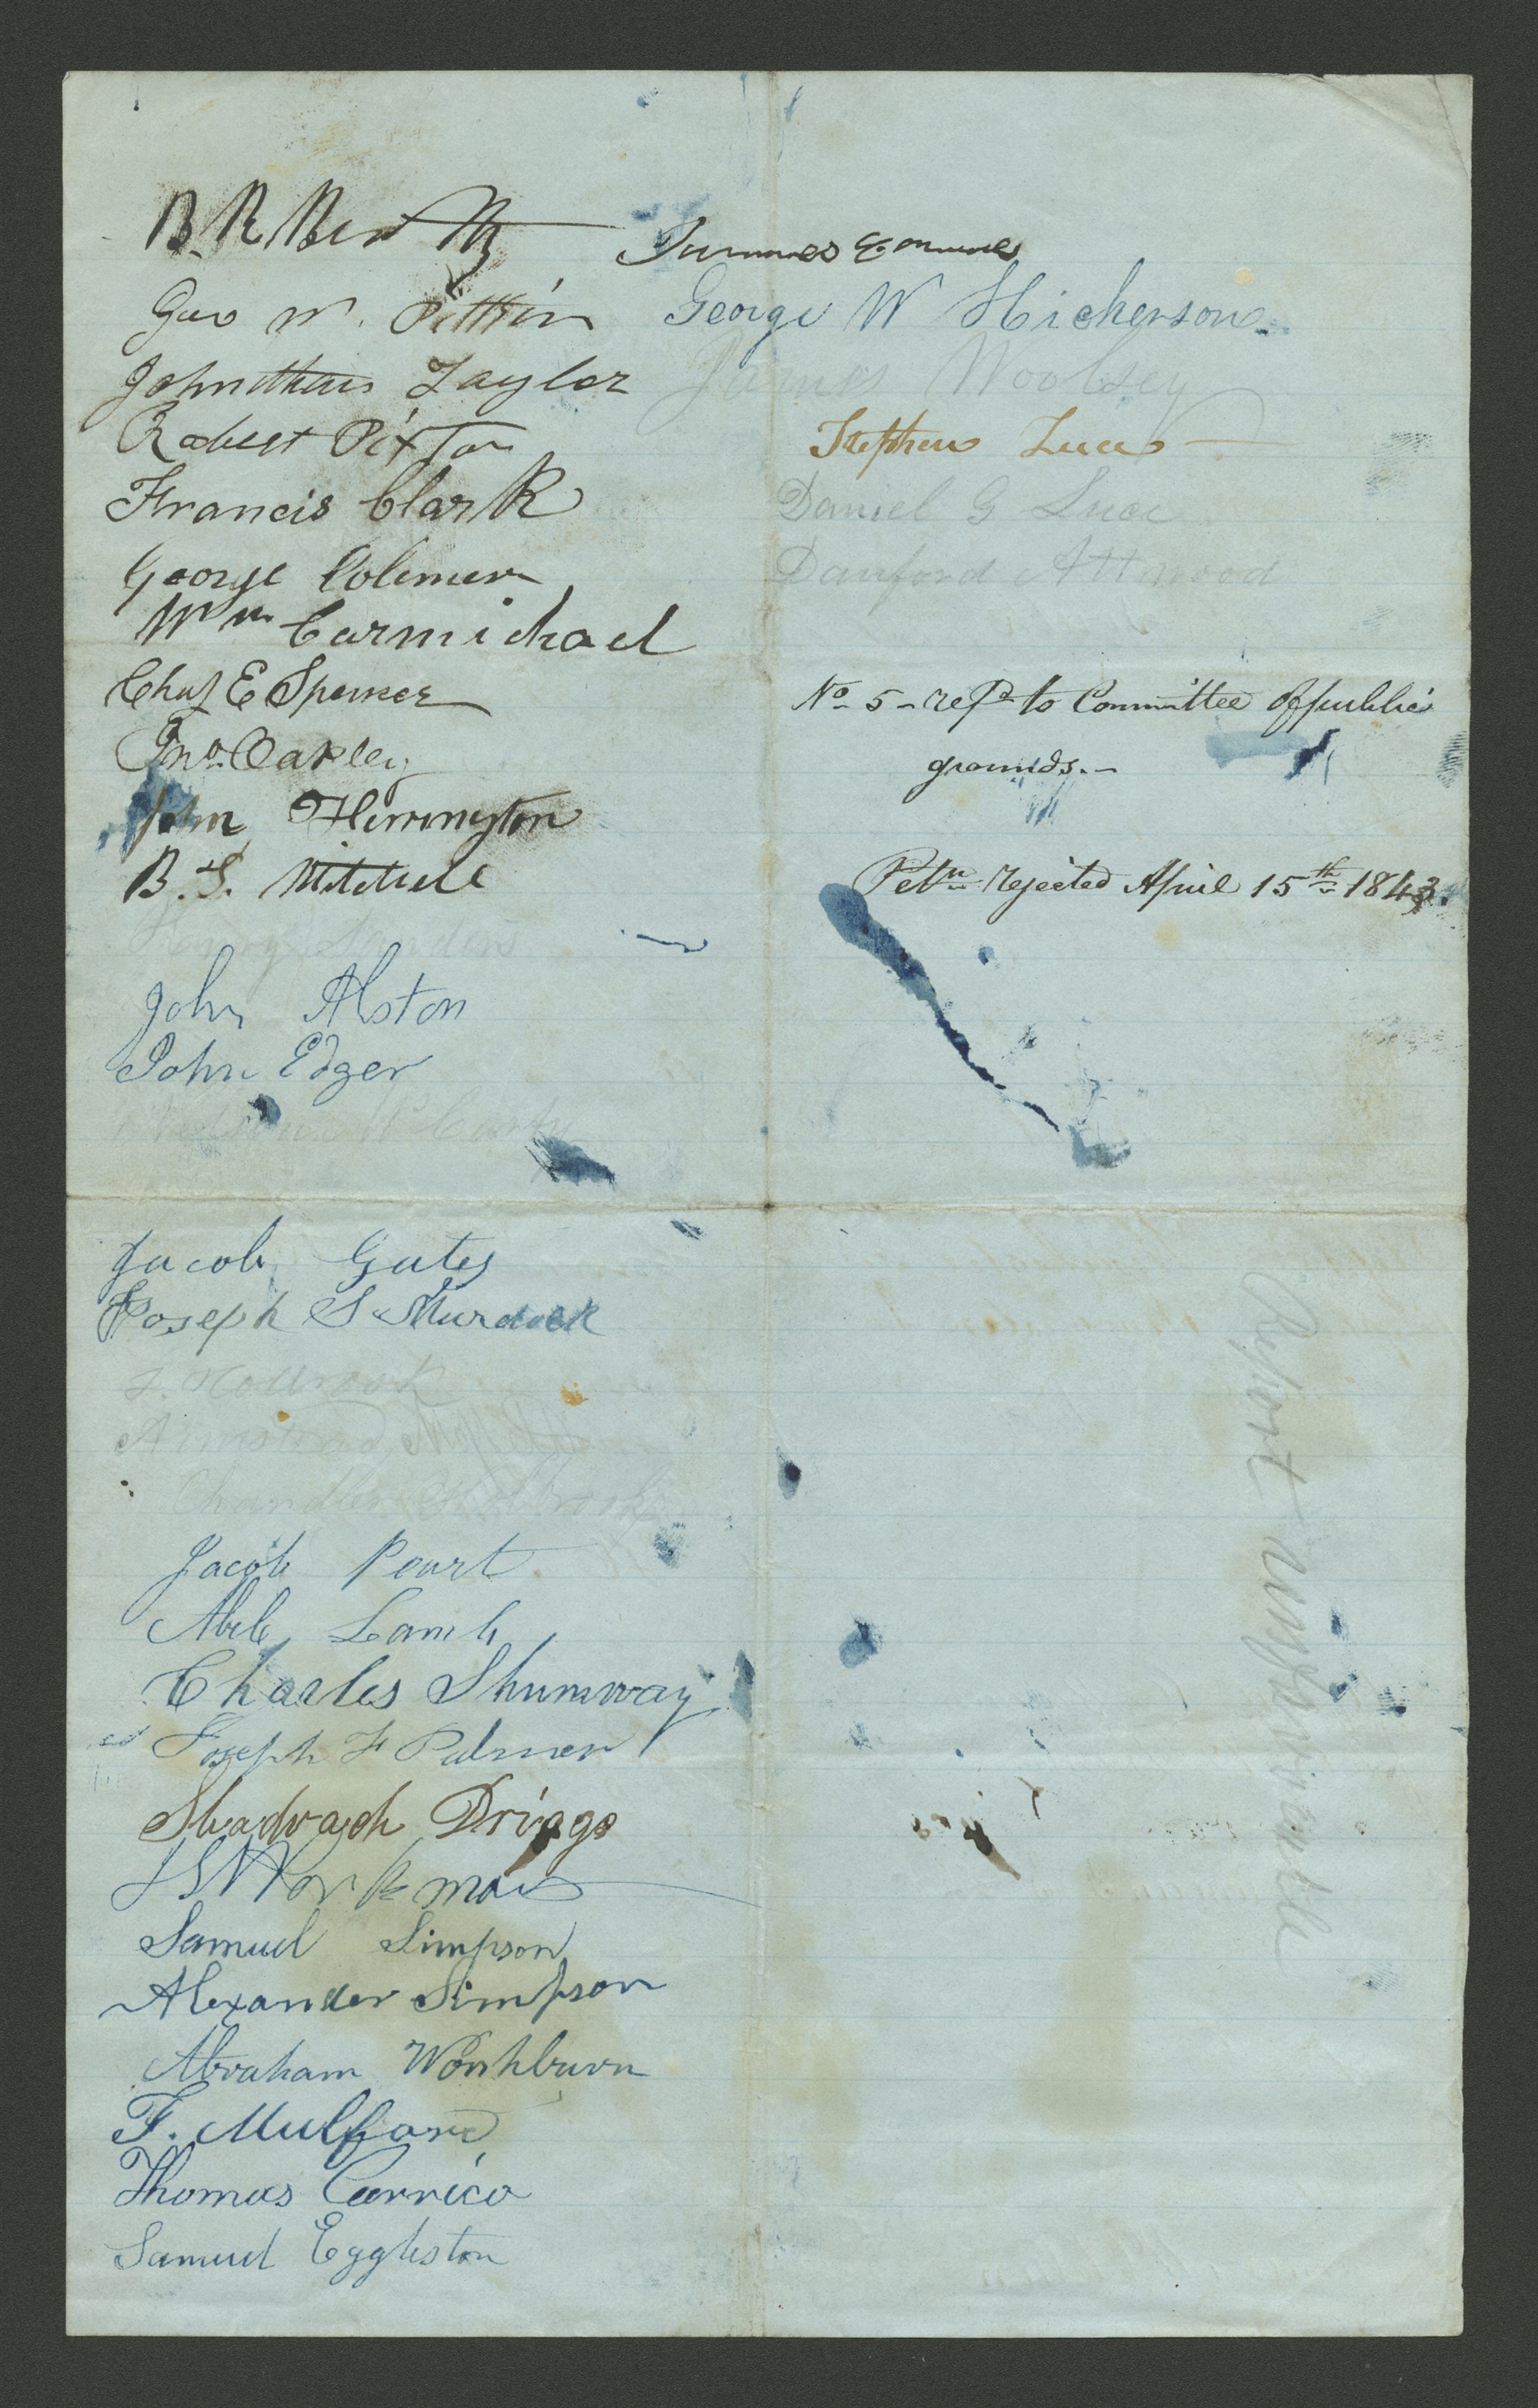 B. R. Bentley
Geo W. Pitkin
Johnathan Taylor
Robert Pixton
Francis Clark
George Colemere
Wm Carmichael
Chas E Spencer
Jno. Oakley
John Herrington
B. T. Mitchell
Henry Sanders
John Alston
John Edger
Jacob Gates
Joseph S Murdock
J. Holbrook
Armstead
Chandler Holbrook
Jacob Peart
Able Lamb
Charles Shumway
Joseph F Palmer
Shadrach Driggs
Workman
Samuel Simpson
Alexander Simpson
Abraham Worshburn
F. Mulford
Thomas Carrico
Samuel Eggleston
George W Hickerson
James Woolsey
Stephen Luce
Daniel G Luce
Danford Attwood
No 5 - refd to Committee of public
grounds.-
Petn rejected April 15th 1843.
Report unfavorable